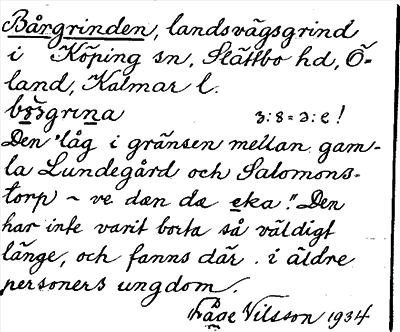 Bårgrinden, landsvägsgrind
i Köping sn, Slättbo hd, Ö-
land, Kalmar l.
bo̱rsgrina 3:8=3:e!
Den låg i gränsen mellan gam-
la Lundegård och Salomons-
torp ~ ve dæn dæ eka!" Den
har inte varit borta så väldigt
länge, och fanns där i äldre
personers ungdom.
Nilsson 1934